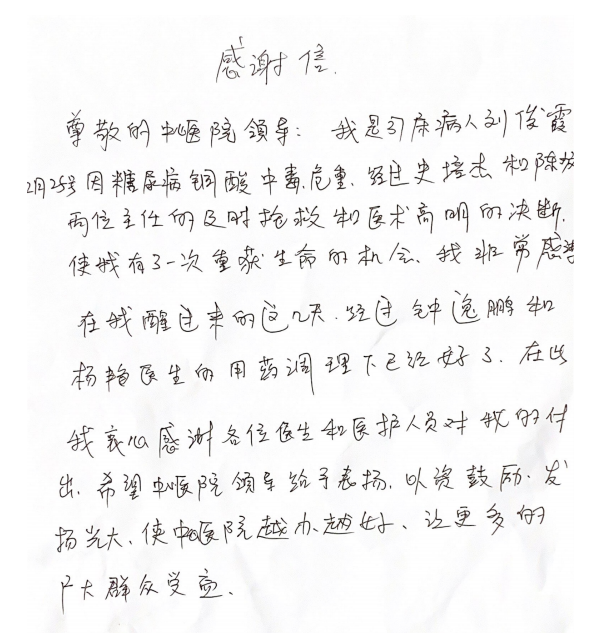 感谢信.
尊敬的中医院领导: 我是31床病人刘俊霞
2月25号因糖尿病铜酸中毒.危重.经过史培杰和陈放
两位主任的及时抢救和医术高明的决断.
使我有了一次重获生命的机会、我非常感谢
在我醒过来的这几天.经过钟逸鹏和
杨艳医生的用药调理下已经好了.在此
我衷心感谢各位医生和医护人员对我的付
出.希望中医院领导给予表扬.以资鼓励.发
扬光大、使中医院越办越好、让更多的
广大群众受益.